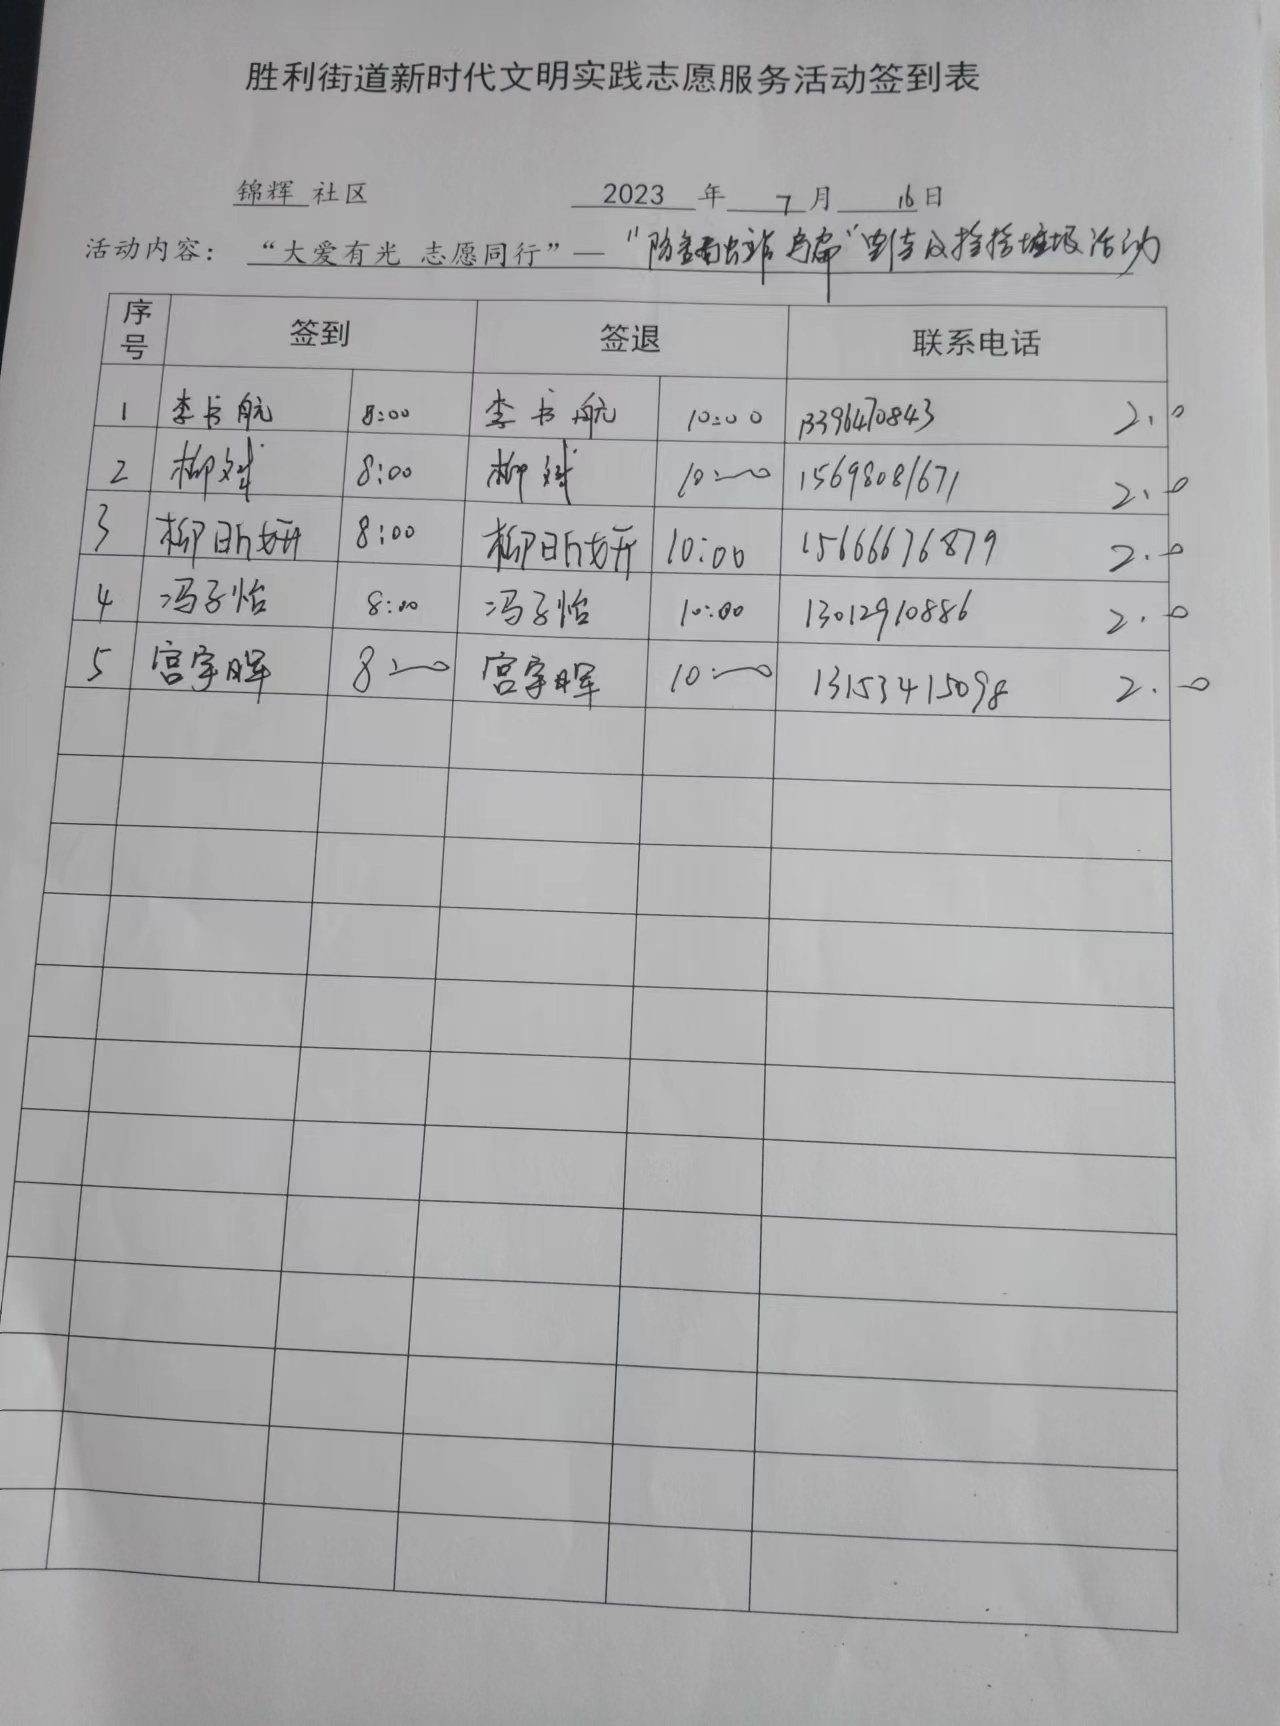 胜利街道新时代文明实践志愿服务活动签到表
锦辉 社区 2023 年 7 月 16 日
活动内容： “大爱有光 志愿同行”— “防 诈骗”宣传及捡拾垃圾活动
序号 签到 签退 联系电话
1 李书航 8:00 李书航 10:00 13396470843 2.0
2 柳斌 8:00 柳斌 10:00 15698081671 2.0
3 柳昕妍 8:00 柳昕妍 10:00 15666676879 2.0
4 冯子怡 8:00 冯子怡 10:00 13012910886 2.0
5 宫宇晖 8:00 宫宇晖 10:00 13153415098 2.0